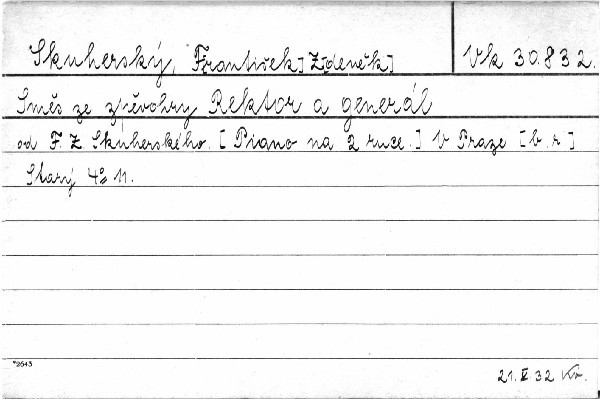 Skuherský, F[rantišek] Z[deněk] Vk 30.832.
Směs ze zpěvohry Rektor a generál
od F. Z. Skuherského. [Piano na 2 ruce.] V Praze [b.r]
Starý 4° 11.
*2643
21. V 32 Kr.